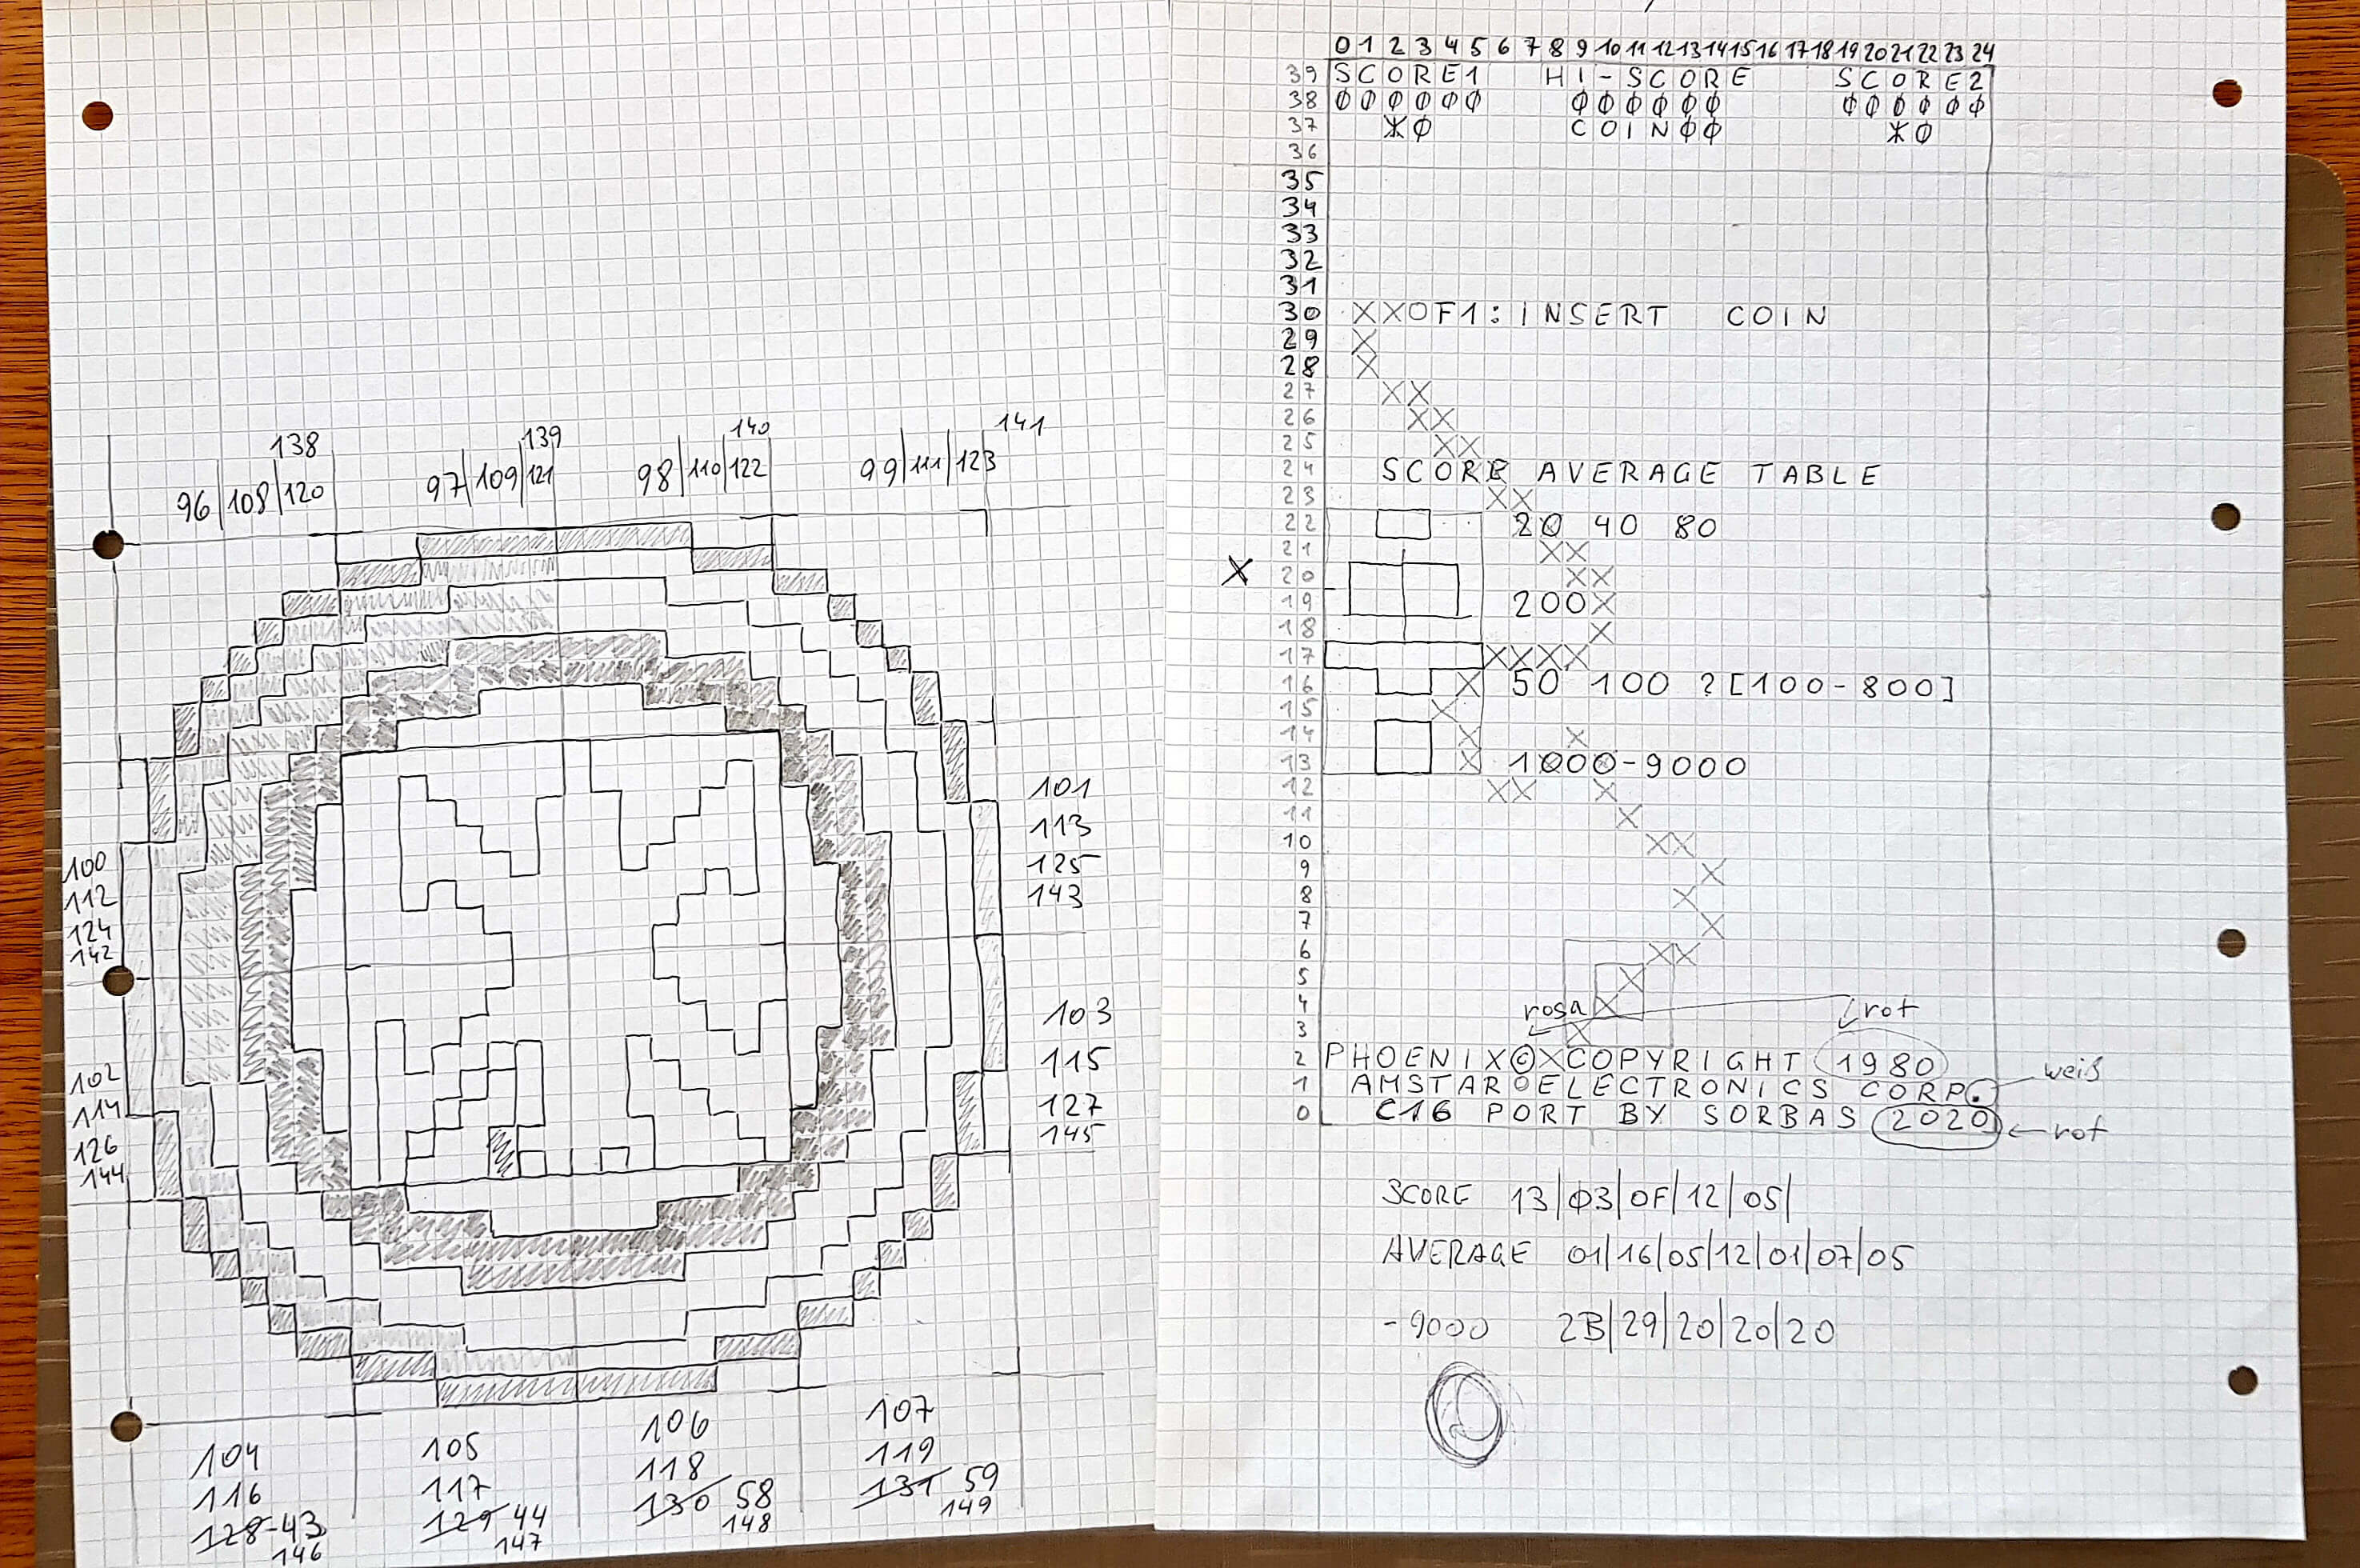 138 139 140 141
96|108|120 97|109|121 98|110|122 99|111|123
101
113
125
143
100
112
124
142
103
115
127
145
102
114
126
144
104 105 106 107
116 117 118 119
128-43 129 44 130 58 131 59
146 147 148 149
0 1 2 3 4 5 6 7 8 9 10 11 12 13 14 15 16 17 18 19 20 21 22 23 24
39 SCORE1 HI-SCORE SCORE2
38 000000 000000 000000
37 *0 COIN00 *0
36
35
34
33
32
31
30 XXOF1: INSERT COIN
29 X
28 X
27 XX
26 XX
25 XX
24 SCORE AVERAGE TABLE
23 XX
22 20 40 80
21 XX
X 20 XX
19 200X
18 X
17 XXXX
16 X 50 100 ?[100-800]
15 X
14 X X
13 X 1000-9000
12 XX X
11 X
10 XX
9 X
8 X
7 X
6 XX
5 X
4 rosa X rot
3 X
2 PHOENIX©XCOPYRIGHT 1980
1 AMSTAROELECTRONICS CORP. weiß
0 C16 PORT BY SORBAS 2020 rot
SCORE 13|03|0F|12|05|
AVERAGE 01|16|05|12|01|07|05
-9000 2B|29|20|20|20